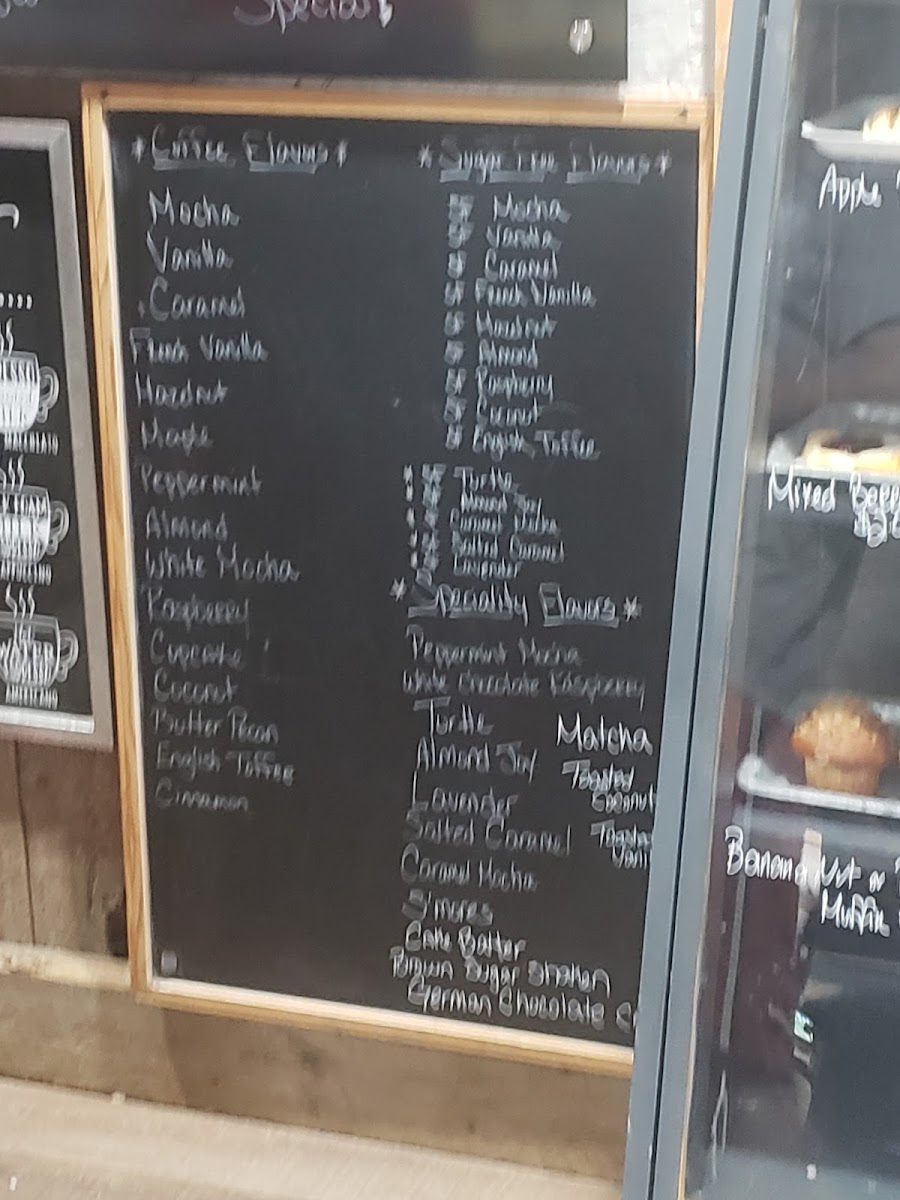 Specials
* Coffee Flavors *
Mocha
Vanilla
Caramel
French Vanilla
Hazelnut
Maple
Peppermint
Almond
White Mocha
Raspberry
Cupcake
Coconut
Butter Pecan
English Toffee
Cinnamon
* Sugar Free Flavors *
SF Mocha
SF Vanilla
SF Caramel
SF French Vanilla
SF Hazelnut
SF Almond
SF Raspberry
SF Coconut
SF English Toffee
* SF Turtle
* SF Almond Joy
* SF Caramel Mocha
* SF Salted Caramel
* SF Lavender
* Speciality Flavors *
Peppermint Mocha
White Chocolate Raspberry
Turtle
Almond Joy
Lavender
Salted Caramel
Caramel Mocha
S'mores
Cake Batter
Brown Sugar Shaken
German Chocolate
Matcha
Toasted
Coconut
Apple
Mixed
Banana Nut or
Muffin